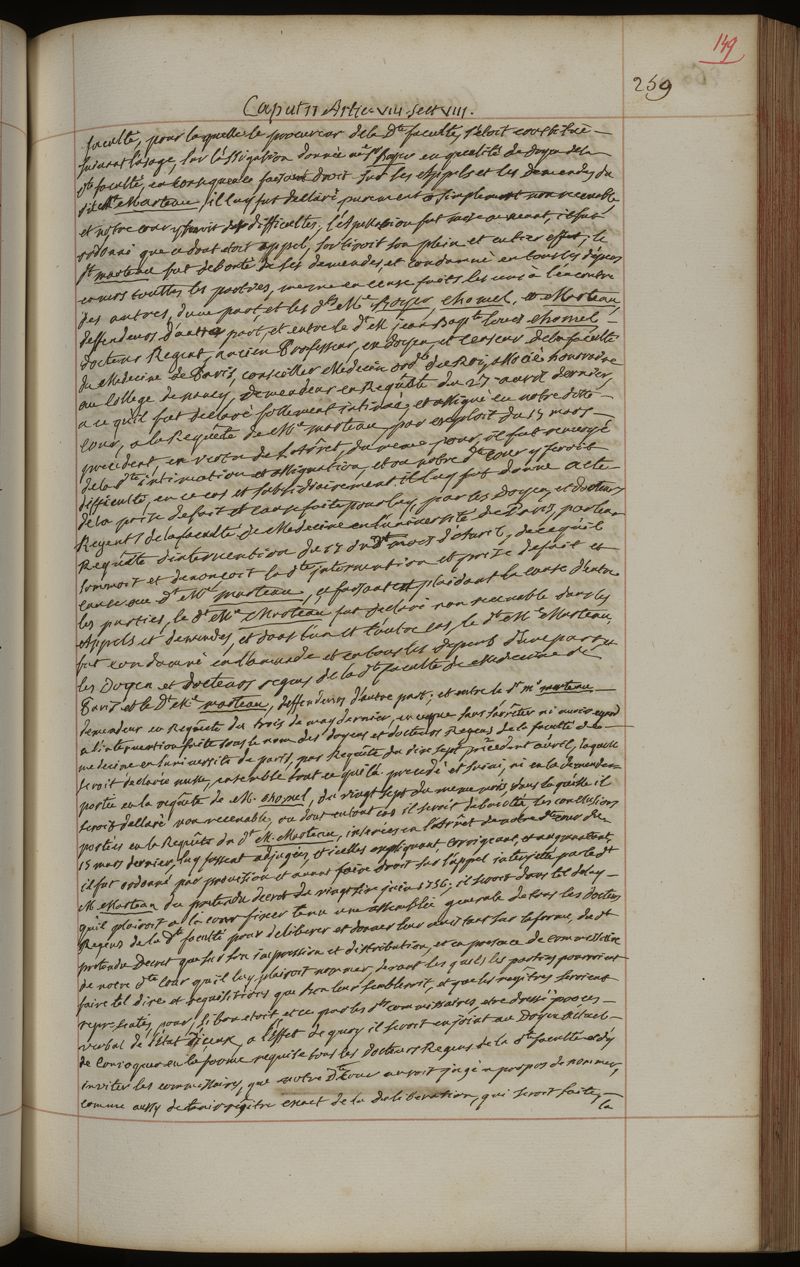 149
259
Caput II Artic. VIII. Sect. VIII.
faculté, pour laquelle le procureur de la Dte faculté, s'etoit constitué
suivant l'usage, sur l'assignation donnée au Sr Boyer en qualité de Doyen de la
dte faculté, en consequence faisant droit sur les Appels et les demandes du
dit Me Marteau, il luy fut declaré purement et simplement non recevable
et notre cour y feroit des difficultés, l'Appellation fut mise au neant, il fut
ordonné que ce dont etoit appel, sortiroit son plein et entier effet, le
Sr marteau fut debouté de ses demandes, et condamné en tous les dépens
envers touttes les parties, meme en ceux faits les uns à l'encontre
des autres, d'une part, et les dts Me Boyer, Chomel, et Marteau,
deffendeurs d'autre part, et entre le dt M. jean Baptte Louis Chomel
docteur Regent, ancien Professeur, en Doyen, et Censeur de la faculté
de Medecine de Paris, conseiller Medecin ordre du Roy, associé honoraire
au College de nancy, demandeur en Requête du 27 avril dernier,
a ce qu'il fut declaré follement intimé, et assigné en notre dite
Cour, a la Requête de Me marteau par exploit du 15 mars
precedent, en vertu de l'Arrêt, du meme jour, il fut renvoyé
de la dte intimation et assignation et ou notre dte Cour y feroit
difficulté, en ce cas et subsidiairement il luy fut donné acte
de la prise de fait et cause faite pour luy, par les Doyen, et docteurs
Regents de la faculté de Medecine en l'université de Paris, par leur
Requête d'intervention du 17 du dt mois d'avril, de ce qu'il
sommoit et denonçoit la dte intervention et prise de fait et
cause au dt Me marteau, et faisant et plaidant la cause d'entre
les parties, le dt Me Marteau fut declaré non recevable dans les
Appels et demandes, et dans l'un et l'autre cas, le dt Me Marteau,
fut condamné en l'amende et en tous les depens d'une part, et
les Doyen et docteurs regens de la dte faculté de Medecine de
Paris et le Dt Me marteau, deffendeurs d'autre part; et entre le dt Me marteau
demandeur en Requête du trois de may dernier, en ce que sans s'arrêter ni avoir egard
a l'intervention faite sous le nom des doyens et docteurs Regens de la faculté de
medecine en l'université de paris, par Requête du dix sept precedent avril, laquelle
seroit declarée nulle, ensemble tout ce qui l'a precedé et suivi, ni en la demande
portée en la requête de M. Chomel, du vingt sept du meme mois dans laquelle il
seroit declaré non recevable, ou dont en tout cas il seroit debouté, les conclusions
portées en la Requête du dt M. Marteau, inserées en l'arrêt de notre dte cour du
15 mars dernier, luy fussent adjugées, et icelles expliquant corrigeant, et augmentant,
il fut ordonné par provision et avant faire droit sur l'appel interjetté par le dt
M. Marteau du pretendu decret du vingt six juin 1756; il seroit dans tel delay
qu'il plairoit a la cour fixer tenu une assemblée generale de tous les docteurs
Regens de la dte faculté pour deliberer et donner leur avis tant sur la forme, du dt
pretendu Decret que sur son impression et distribution, et en presence de commissaires
de notre dte Cour qu'il luy plairoit nommer, devant lesquels les parties pourroient
faire tel dire et requisitions que bon leur sembleroit, et que les regîtres seroient
representés, pour, si bon etoit, et ce par les dts commissaires, etre dressé procès
verbal de l'état d'iceux, a l'Effet de quoy il seroit enjoint au Doyen actuel
de Convoquer en la forme requise tous les docteurs Regens de la dte faculté et d'y
inviter les commissaires, que notre Dte Cour auroit jugé a propos de nommer,
comme aussy de tenir régitre exact de la deliberation, qui seroit faite,
la